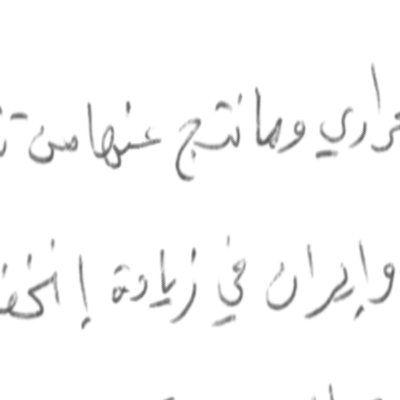 حراري وما نتج عنها من
وإيران في زيادة إنخف